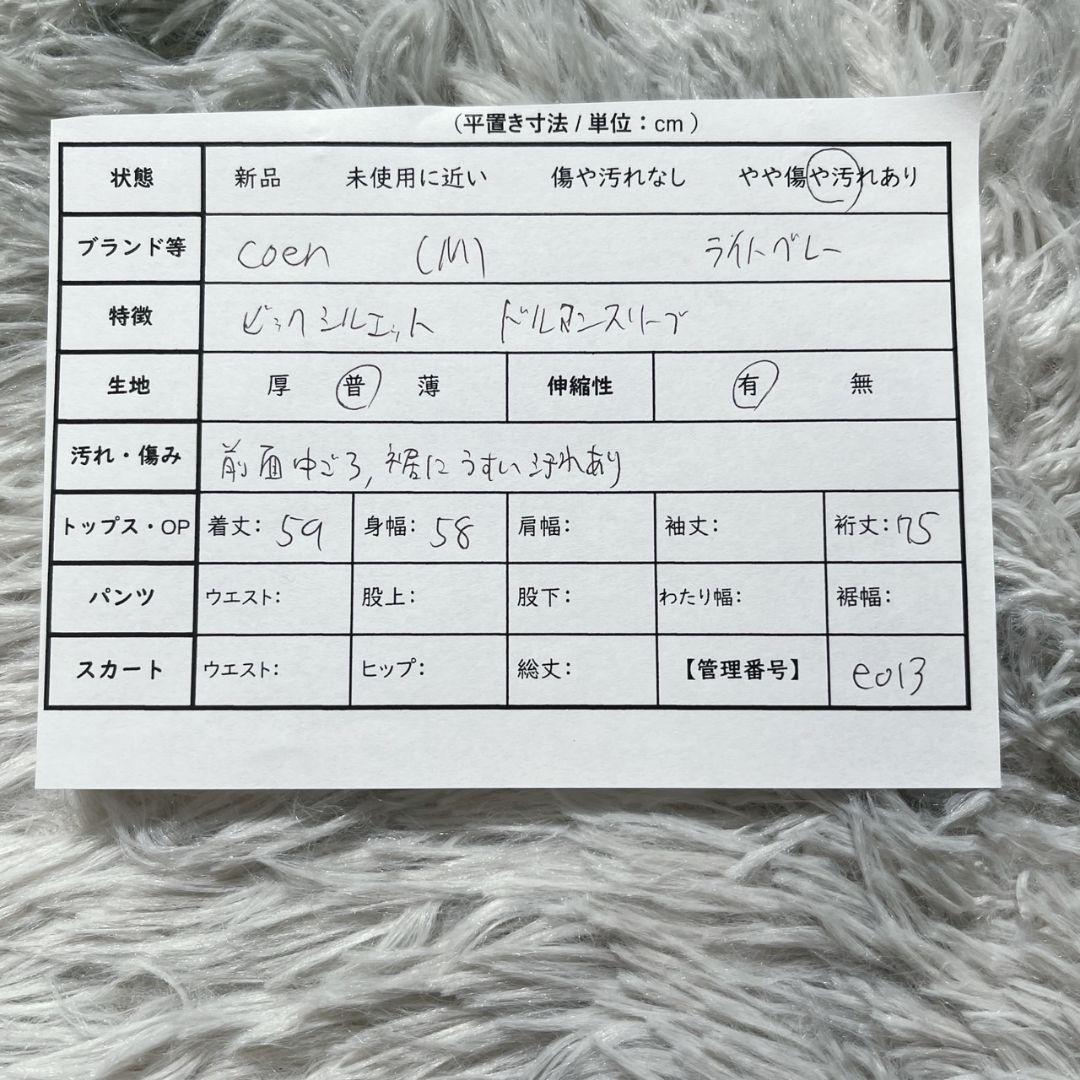 （平置き寸法 / 単位：cm ）
状態 新品 未使用に近い 傷や汚れなし やや傷や汚れあり
ブランド等 coen (M) ライトグレー
特徴 ビックシルエット ドルマンスリーブ
生地 厚 普 薄 伸縮性 有 無
汚れ・傷み 前面中ごろ,裾にうすい汚れあり
トップス・OP 着丈: 59 身幅: 58 肩幅: 袖丈: 裄丈: 75
パンツ ウエスト: 股上: 股下: わたり幅: 裾幅:
スカート ウエスト: ヒップ: 総丈: 【管理番号】 e013